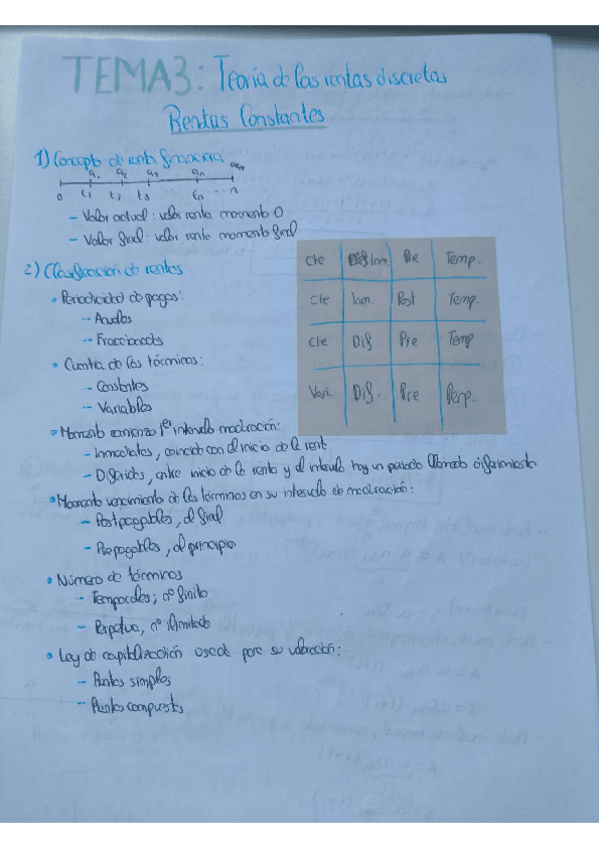 TEMA3: Teoría de las rentas discretas
Rentas Constantes
1) Concepto de renta financiera
a1 a2 a3 an
0 t1 t2 t3 tn .... n
- Valor actual: valor renta momento 0
- Valor final: valor renta momento final
2) Clasificación de rentas
• Periodicidad de pagos:
-- Anuales
-- Fraccionadas
• Cuantía de los términos:
-- Constantes
-- Variables
• Momento comienzo 1er intervalo maduración:
- Inmediatas, coincide con el inicio de la renta
- Diferidas, entre inicio de la renta y el intervalo hay un periodo llamado diferimiento
• Momento vencimiento de los términos en su intervalo de maduración:
- Postpagables, al final
- Prepagables, al principio
• Número de términos
-- Temporales; nº finito
- Perpetua, nº ilimitado
• Ley de capitalización usada para su valoración:
- Rentas simples
- Rentas compuestas
Cte Inm. Pre Temp.
Cte Inm. Post Temp.
Cte Dif. Pre Temp
Vari. Dif. Pre Perp.